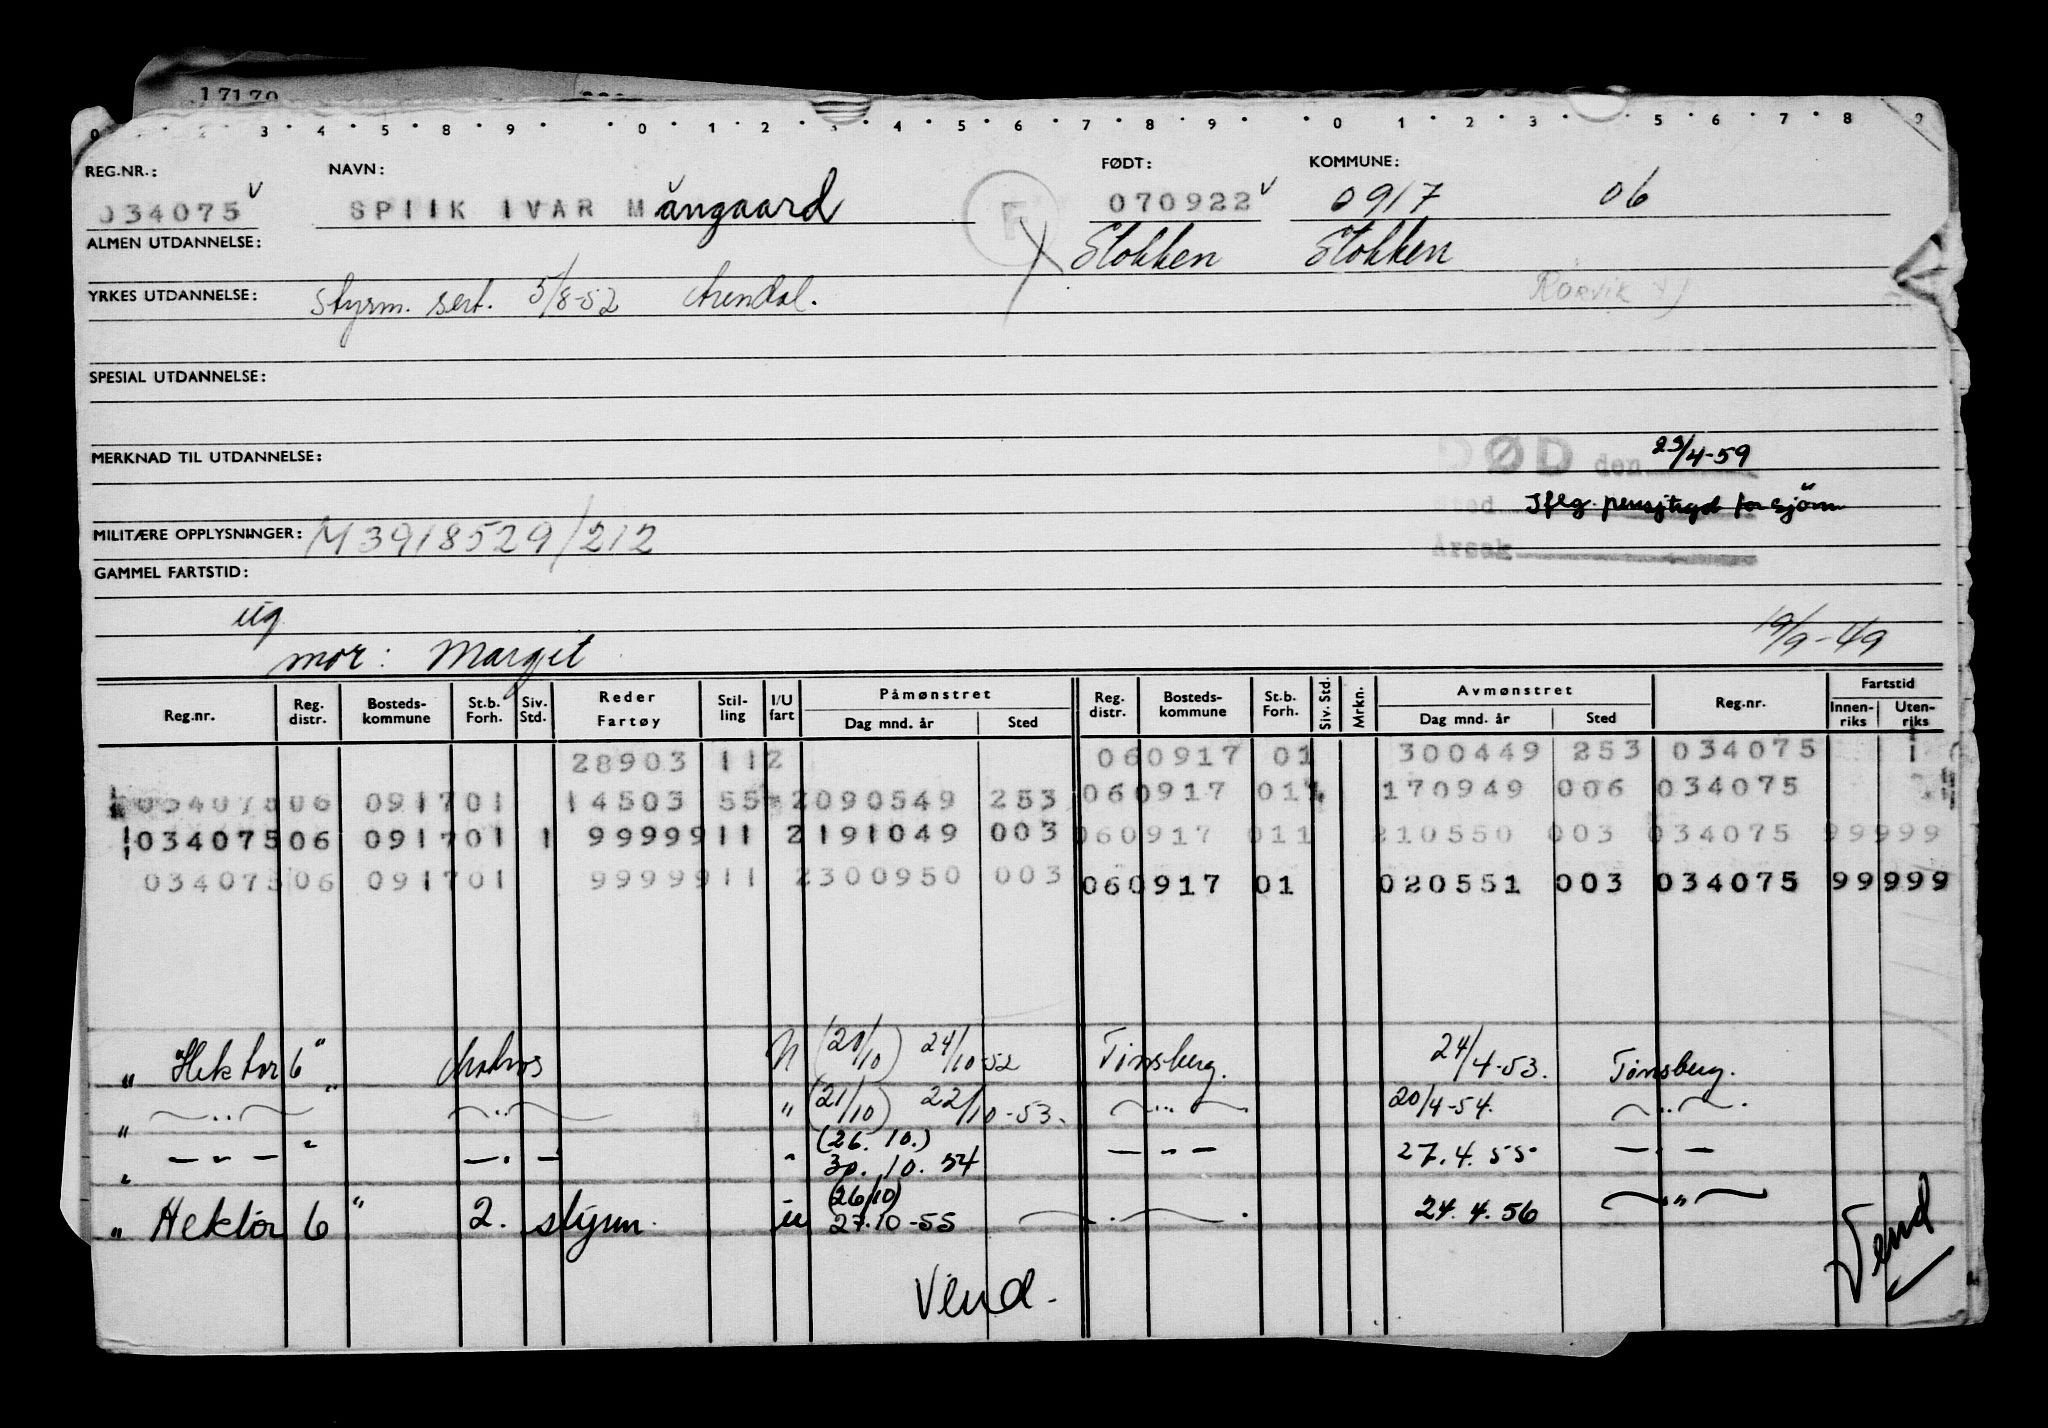 17170
0 2 3 4 5 8 9 0 1 2 3 4 5 6 7 8 9 0 1 2 3 5 6 7 8 9
REG.NR.: NAVN: FØDT: KOMMUNE:
034075 v SPIIK IVAR Mångaard F 070922 v 0917 06
ALMEN UTDANNELSE: Stokken Stokken
YRKES UTDANNELSE: Styrm. sert. 5/8-52 Arendal. Rørvik
SPESIAL UTDANNELSE:
MERKNAD TIL UTDANNELSE: DØD den 23/4-59
Sted Iflg. pensjtrygd for sjöm
MILITÆRE OPPLYSNINGER: M3918529/212 Årsak
GAMMEL FARTSTID:
ug 19/9-49
mor: Margit
Reg.nr. Reg. distr. Bosteds-kommune St.b. Forh. Siv. Std. Reder Fartøy Stil-ling I/U fart Påmønstret Dag mnd. år Sted Reg. distr. Bosteds-kommune St.b. Forh. Siv. Std. Mrkn. Avmønstret Dag mnd. år Sted Reg.nr. Fartstid Innen-riks Uten-riks
28903 112 060917 01 300449 253 034075
034075 06 0917 01 14503 55 2 090549 253 060917 011 170949 006 034075
034075 06 0917 01 1 99999 11 2 191049 003 060917 011 210550 003 034075 99999
034075 06 0917 01 99999 11 2 300950 003 060917 01 020551 003 034075 99999
" Hektor 6" Matros U (20/10) 24/10-52 Tønsberg. 24/4-53. Tønsberg.
" —"— " —"— " (21/10) 22/10-53. —"— 20/4-54. —"—
" —"— " —"— " (26.10.) 30.10.54 —"— 27.4.55 —"—
" Hektor 6" 2. styrm. u (26/10) 27.10-55 —"— 24.4.56 —"—
Vend
Vend.